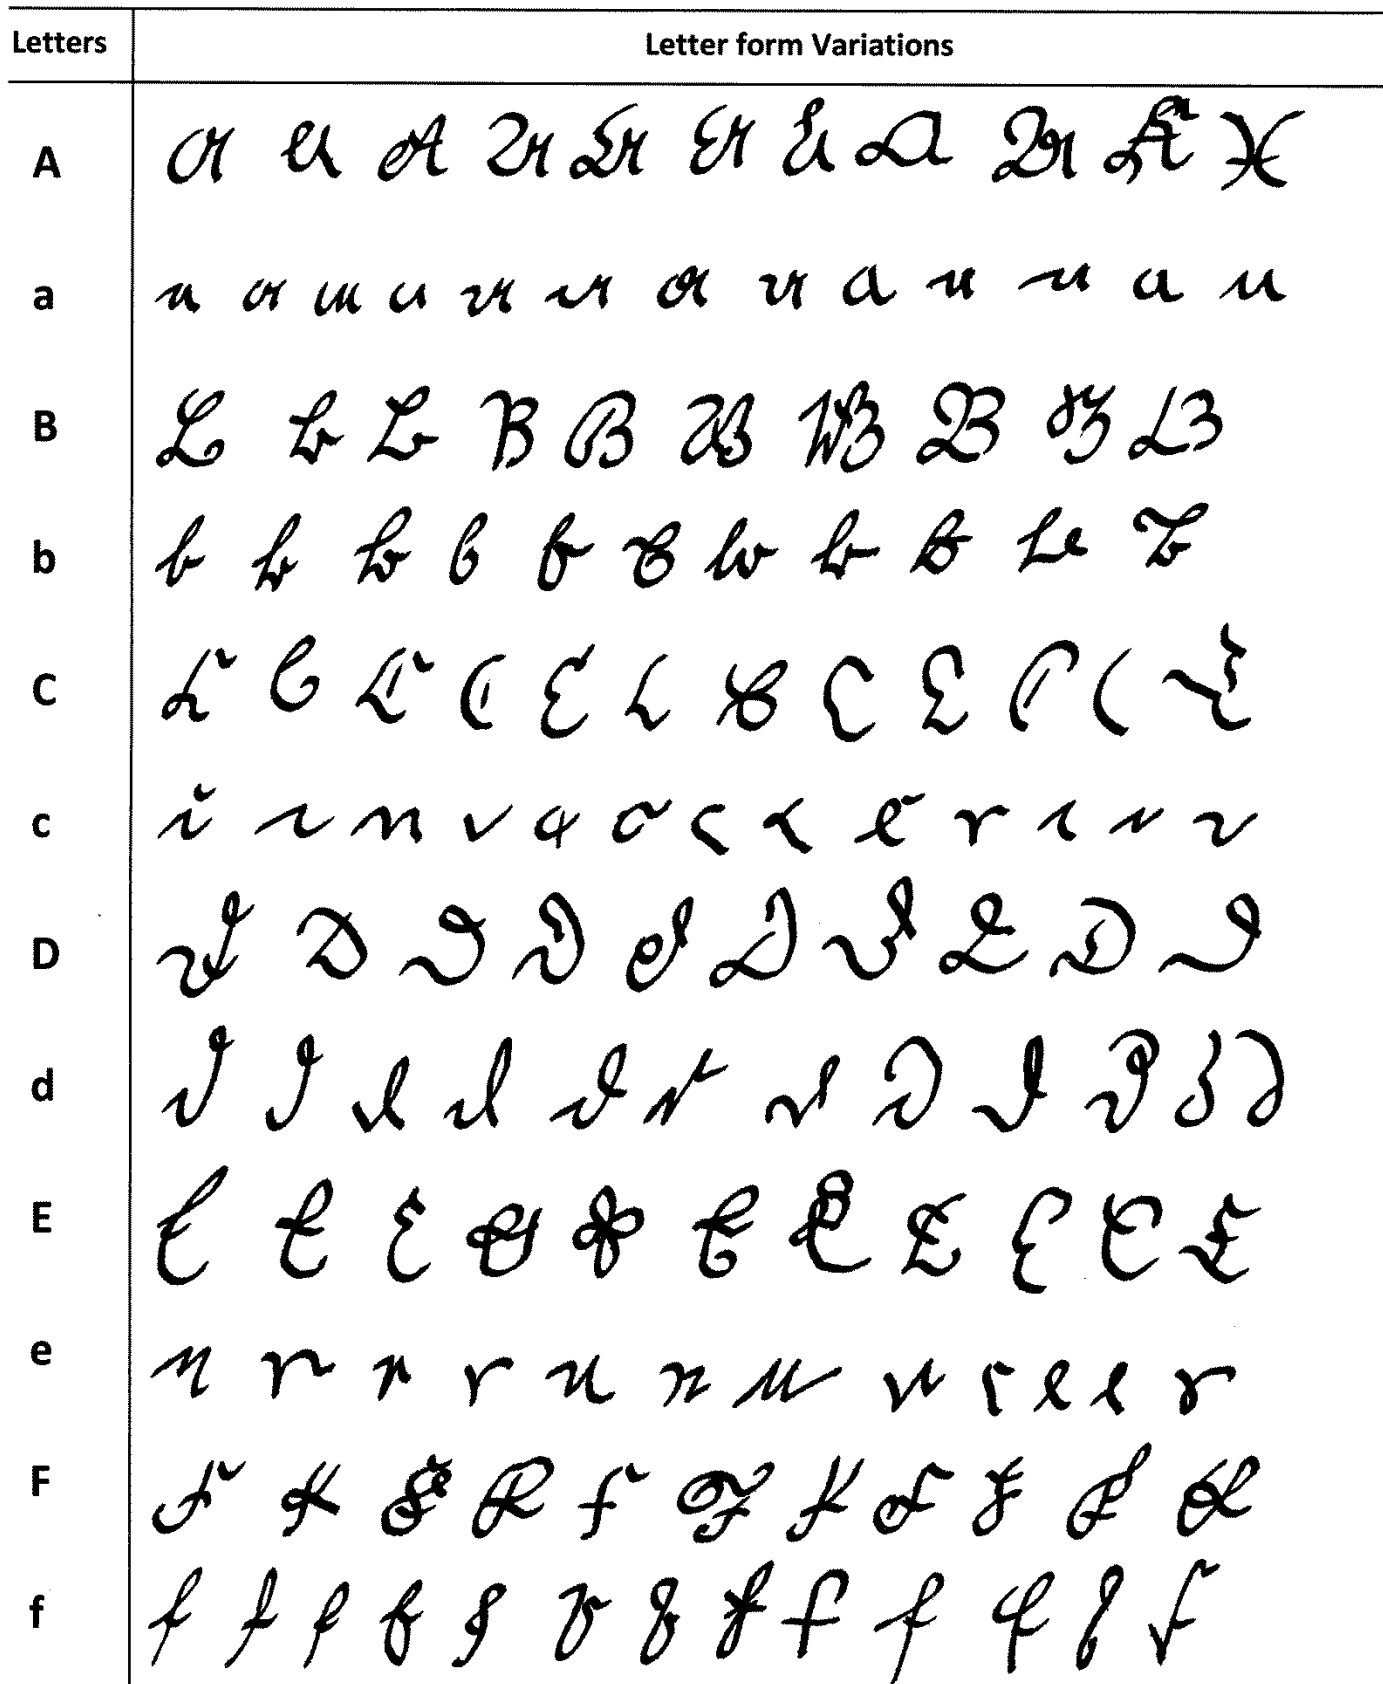 Letters Letter form Variations
A A A A A A A A A A A A
a a a a a a a a a a a a a a
B B B B B B B B B B B
b b b b b b b b b b b b
C C C C C C C C C C C C C
c c c c c c c c c c c c c c
D D D D D D D D D D D
d d d d d d d d d d d d d
E E E E E E E E E E E E
e e e e e e e e e e e e e
F F F F F F F F F F F F
f f f f f f f f f f f f f f